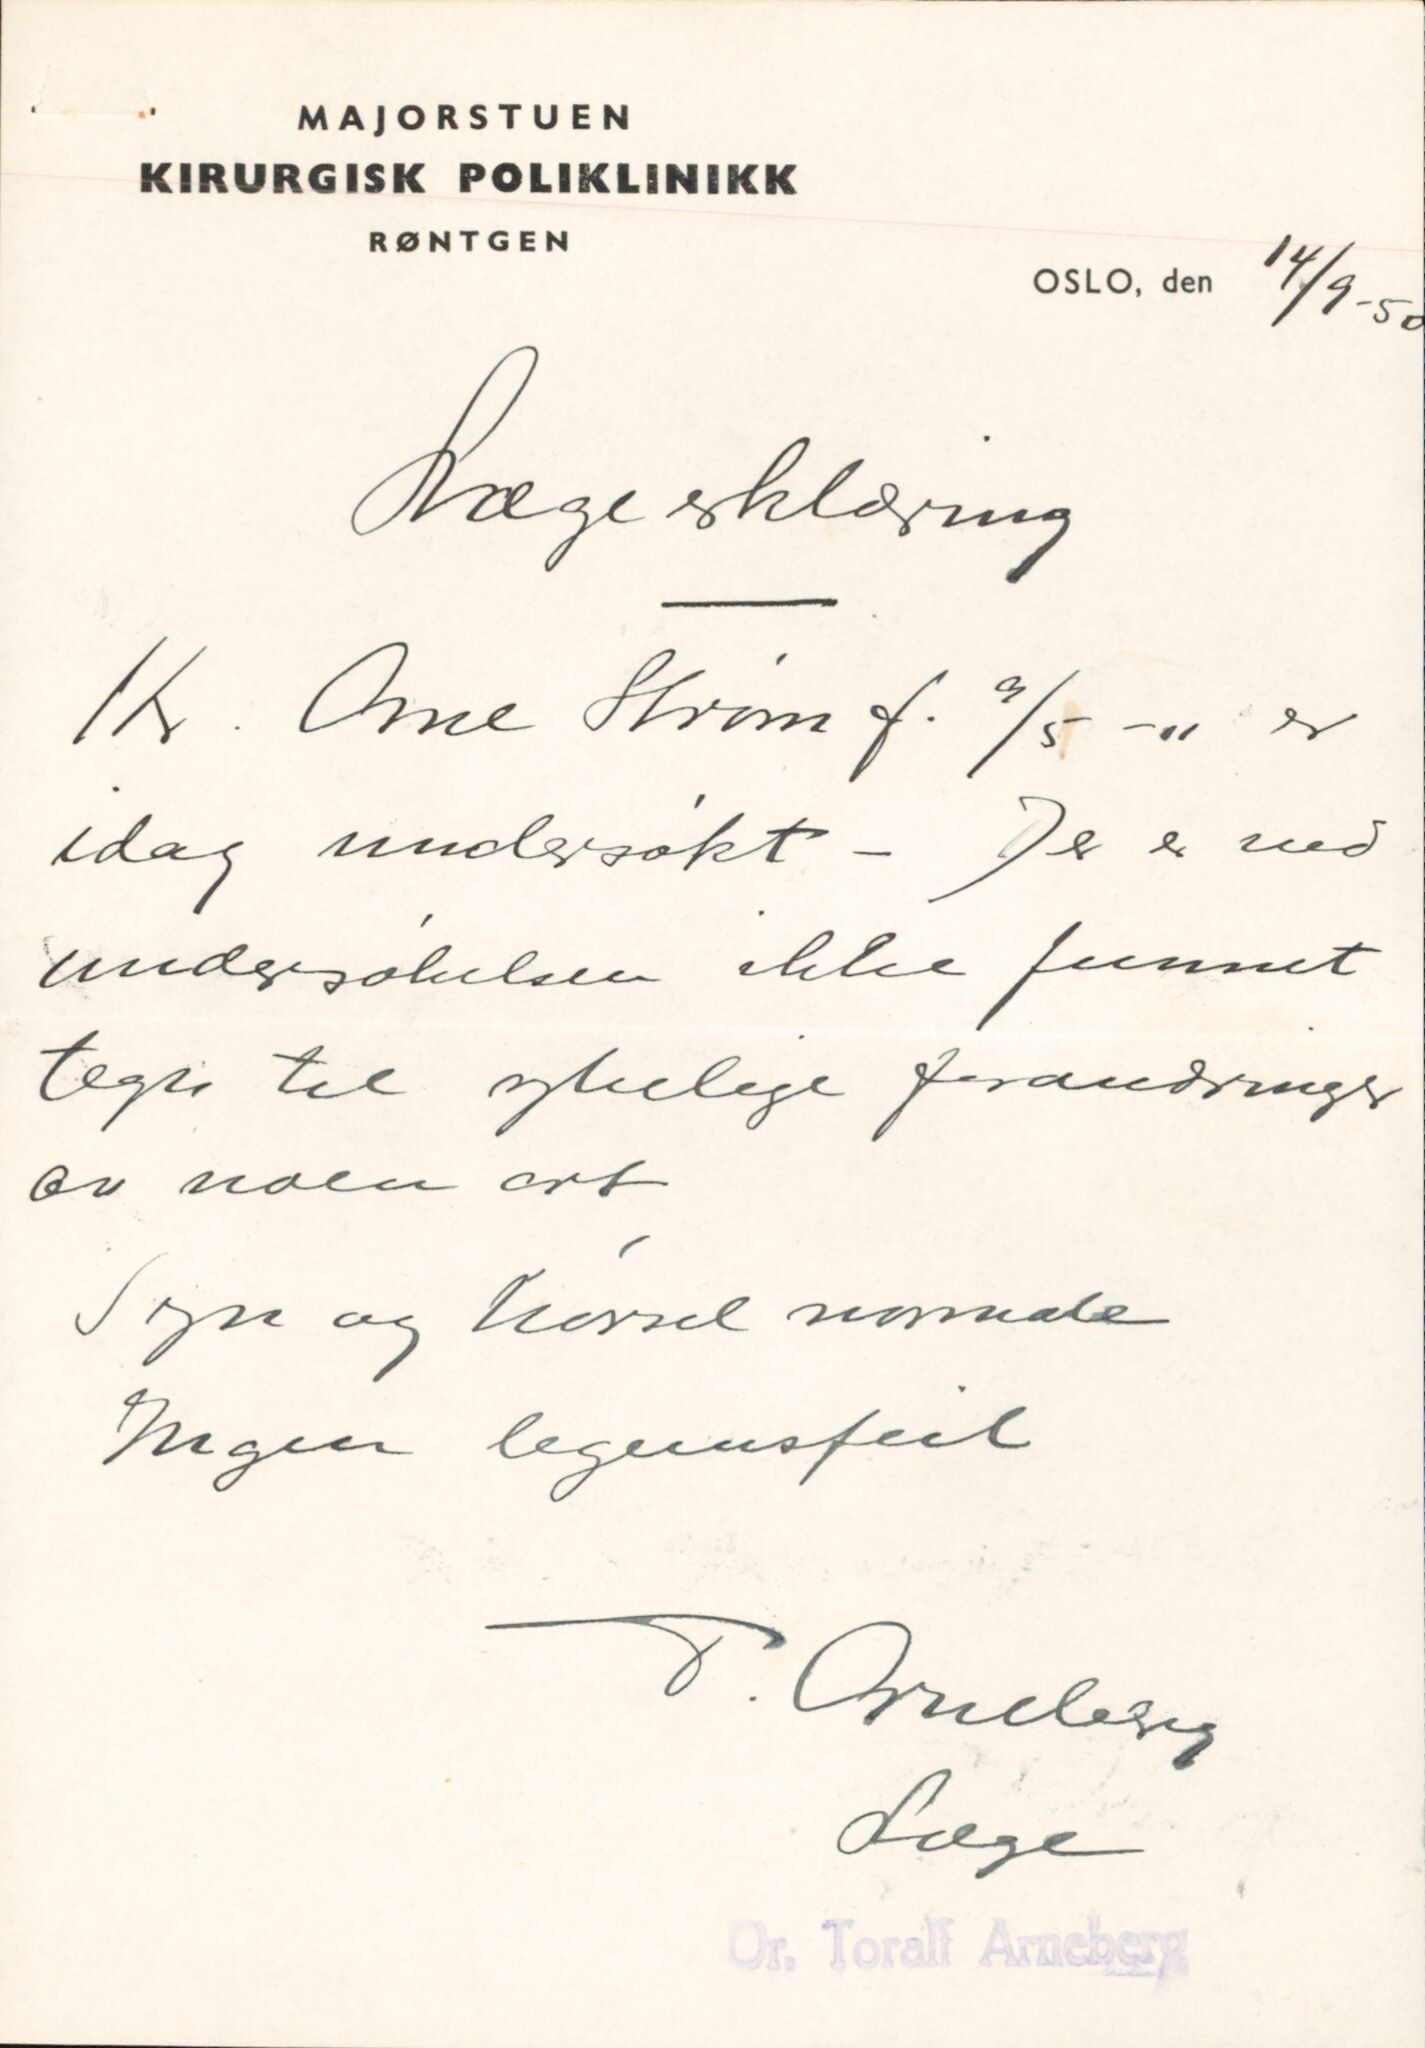 MAJORSTUEN
KIRURGISK POLIKLINIKK
RØNTGEN
OSLO, den 14/9-50
Lægeerklæring
Hr. Arne Strøm f. 9/5-11 er
idag undersøkt - Der er ved
undersøkelsen ikke funnet
tegn til sykelige forandringer
av noen art
Syn og hørsel normale
Ingen legemsfeil
T. Arneberg
Læge
Dr. Toralf Arneberg